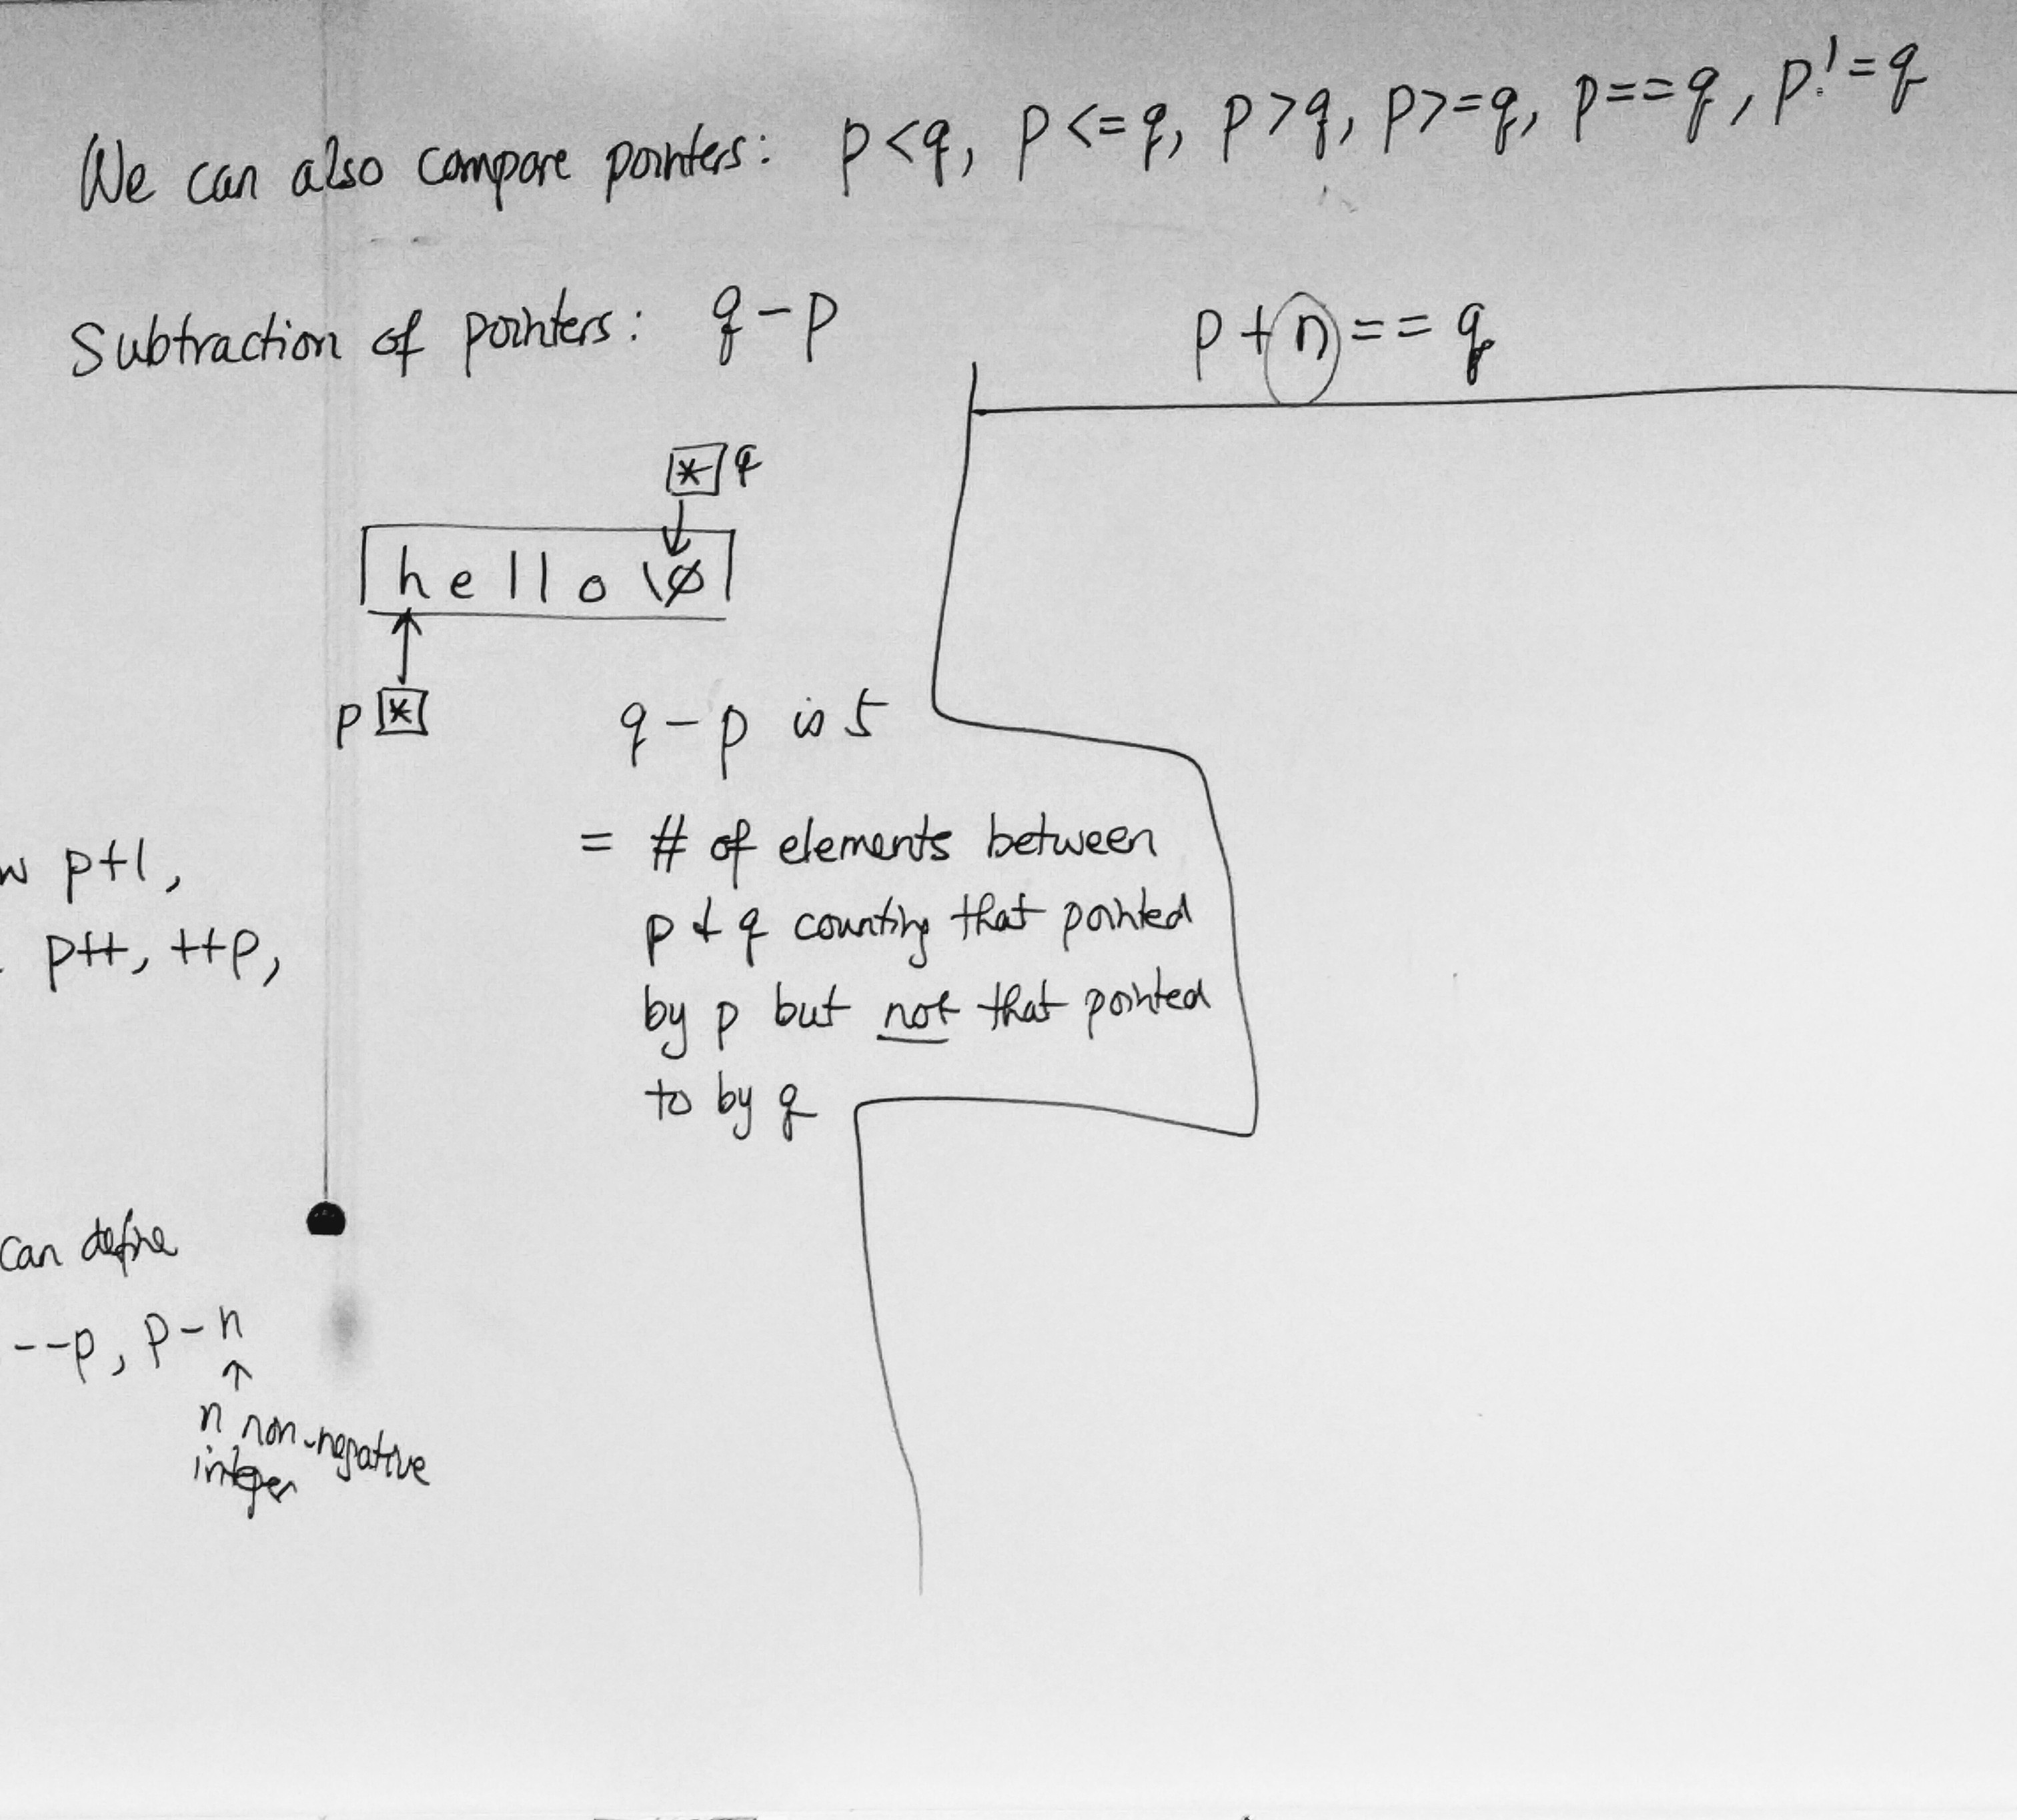 We can also compare pointers: p<q, p<=q, p>q, p>=q, p==q, p!=q
Subtraction of pointers: q-p
p+n==q
* q
h e l l o \0
p *
q-p is 5
= # of elements between
p & q counting that pointed
by p but not that pointed
to by q
p+1,
p++, ++p,
can define
--p, p-n
↑
n non-negative
integer